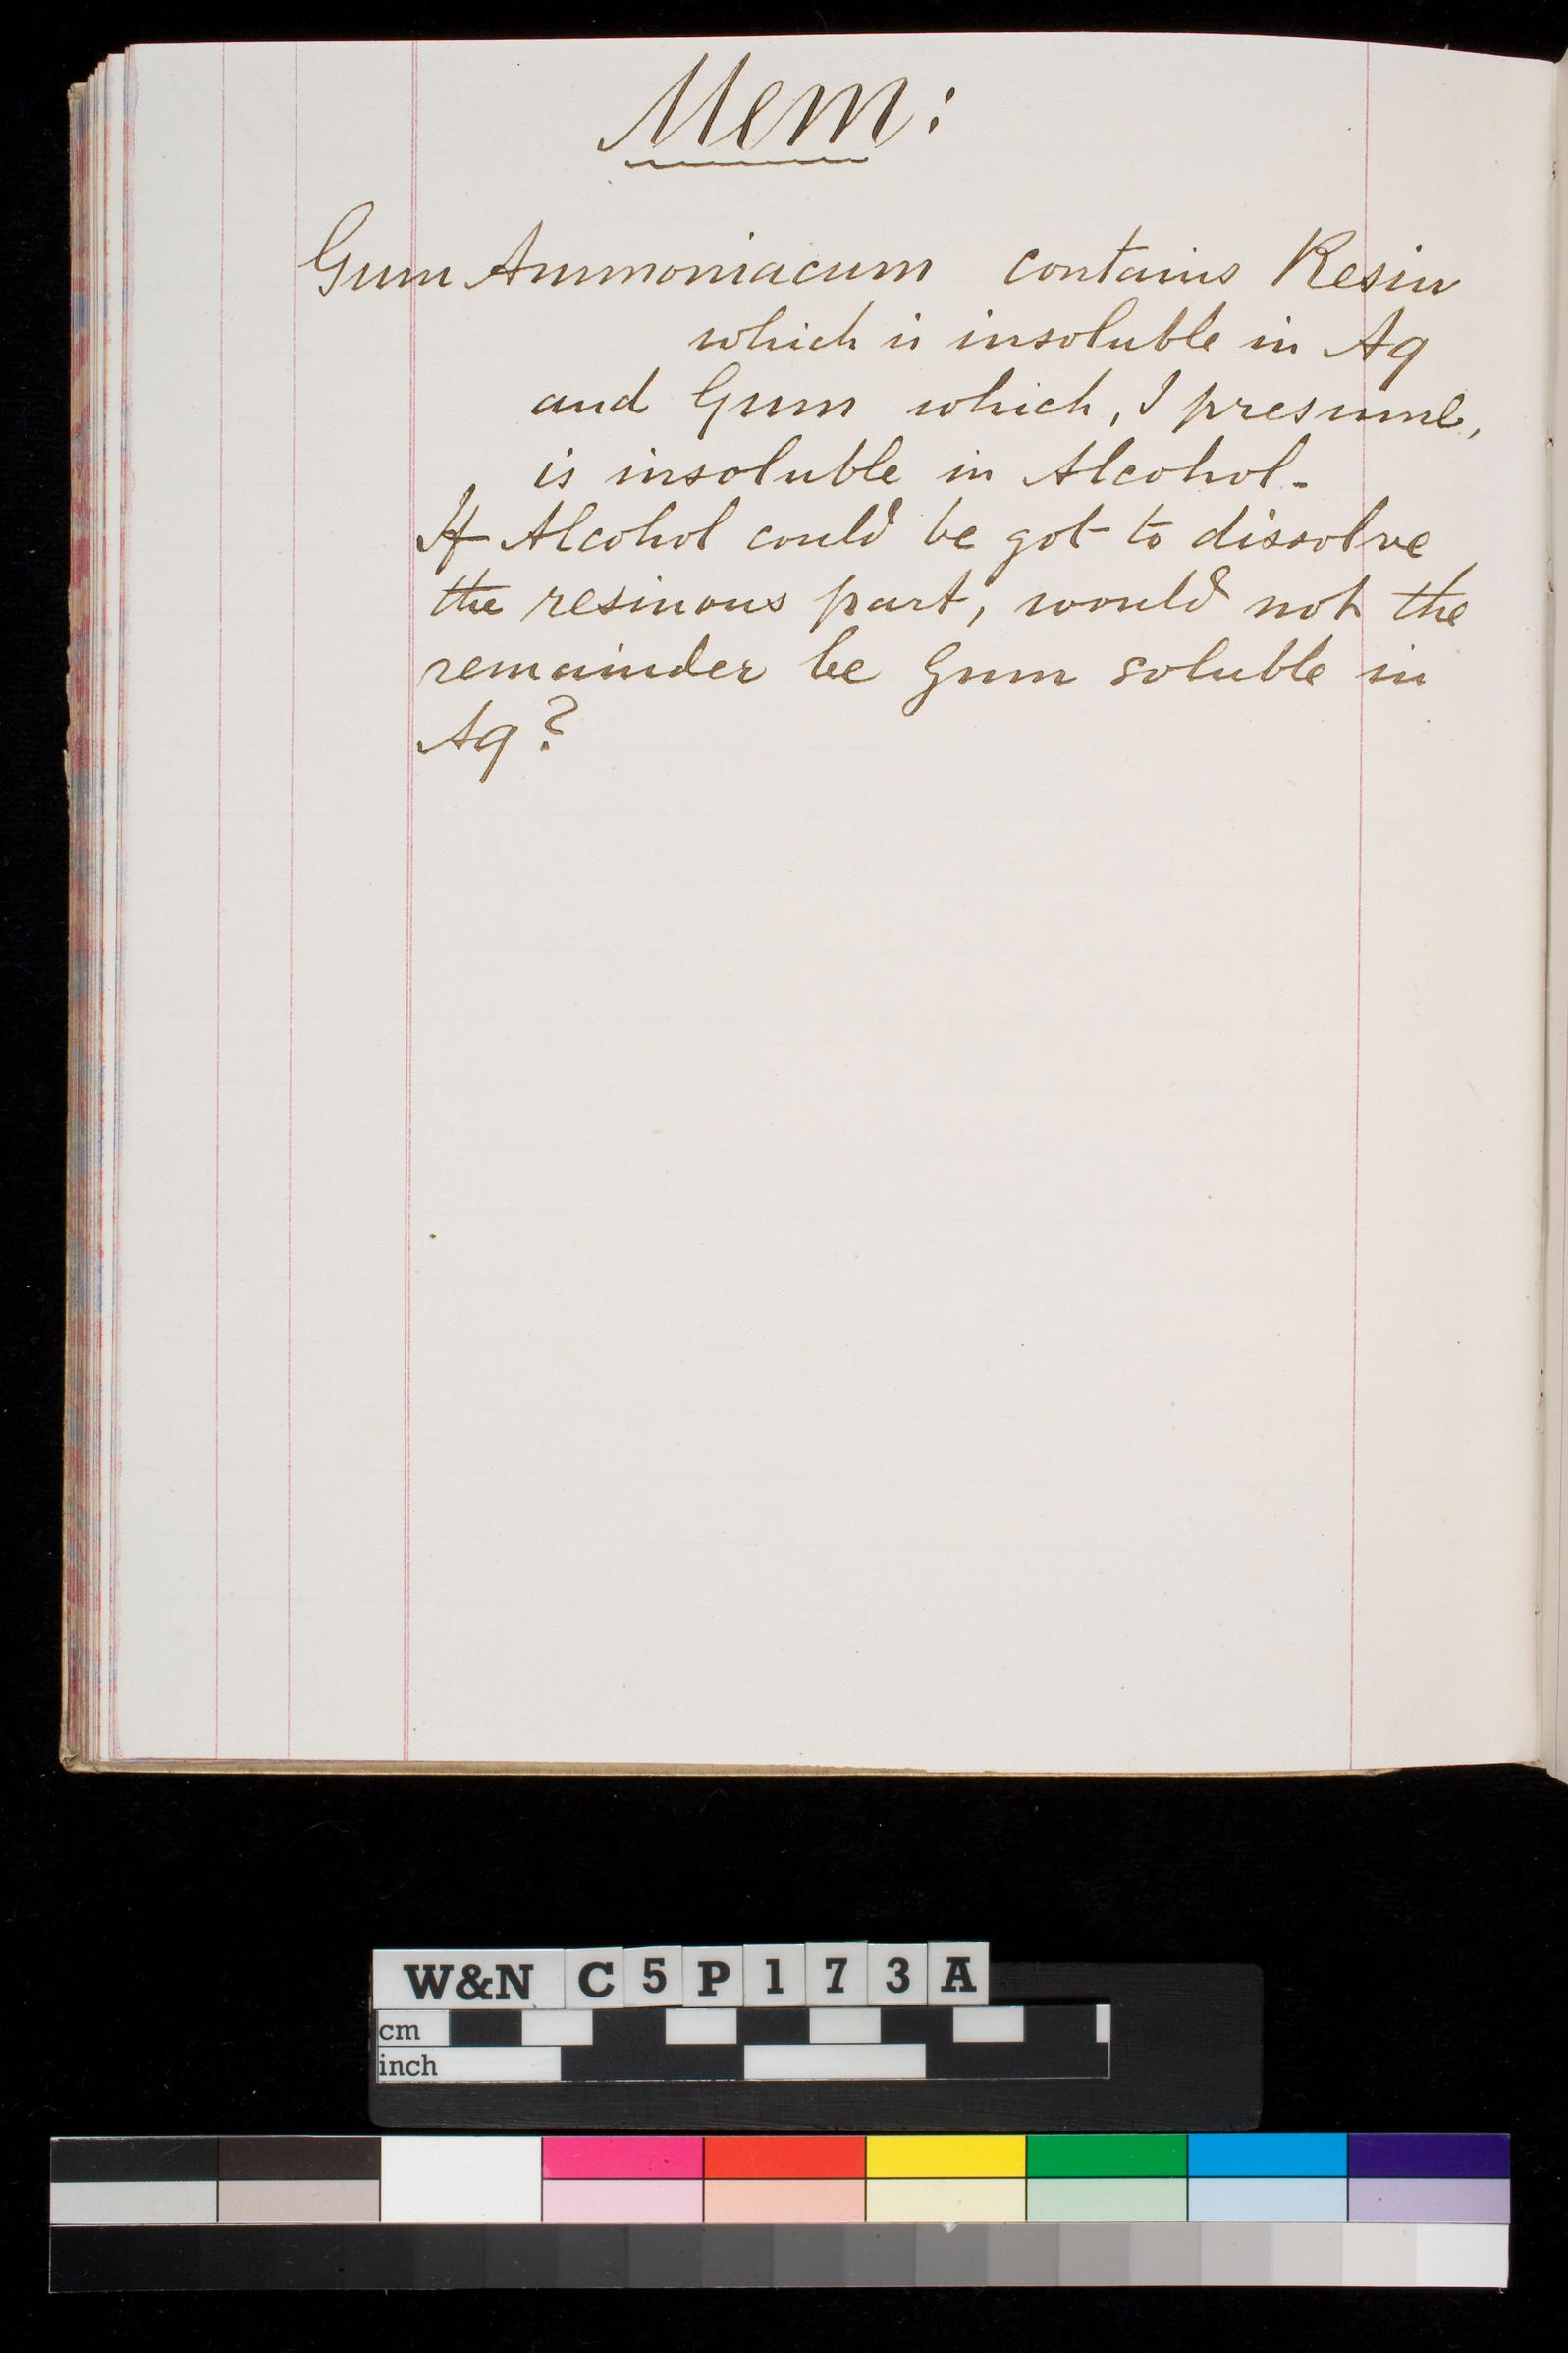 Mem:
Gum Ammoniacum contains Resin
which is insoluble in Aq
and Gum which, I presume,
is insoluble in Alcohol.
If Alcohol could be got to dissolve
the resinous part, would not the
remainder be Gum soluble in
Aq?
W&N C5P173A
cm
inch